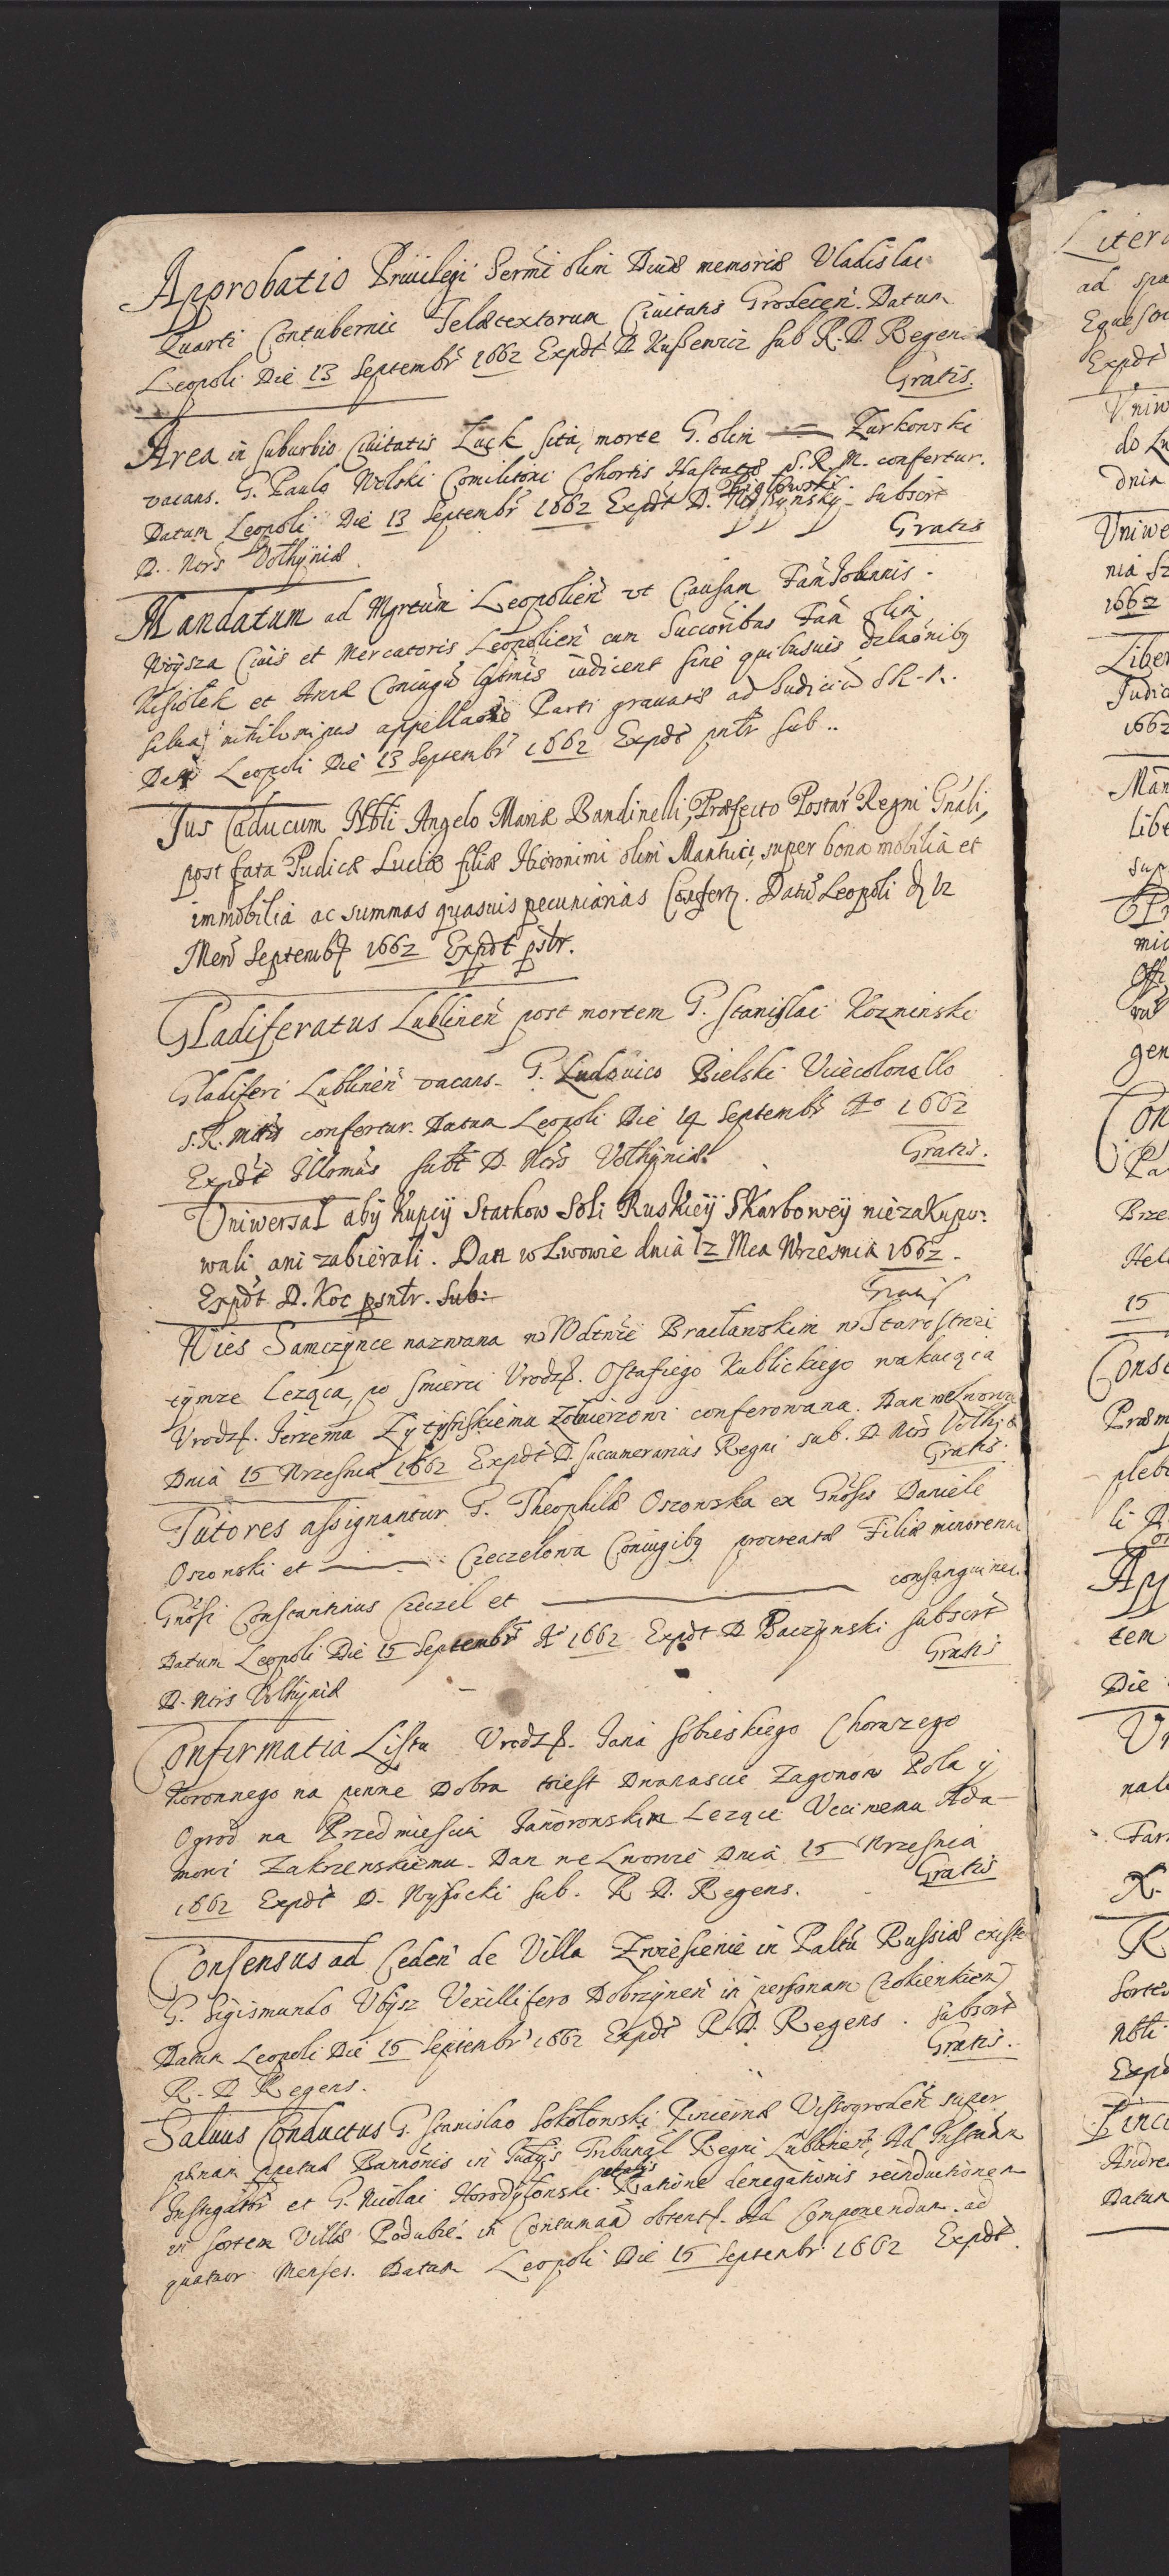 Approbatio Priuilegi Sermi olim Diuæ memoriæ Vladislai
Quarti Contubernii Telætextorum Ciuitatis Grodecen. Datum
Leopoli Die 13 Septembr 1662 Expdt D. Kuszewicz sub R. D. Regen
Gratis.
Area in suburbio Ciuitatis Luck sita, morte G. olim — Zurkowski
vacans. G. Paulo Wolski Comilitoni Cohortis Hastatæ S. R. M. confertur.
Datum Leopoli Die 13 Septembr 1662 Expdt D. subscrt
Gratis
D. Ners Volhyniæ
Mandatum ad Mgrtum Leopolien vt Causam Fam Johannis
Woysza Ciuis et Mercatoris Leopolien cum Succoribus Fam olim
Kisiołek et Annæ Coniugu iudicent sine quibusuis dzlaõniby
salua nihilominus appellaõne Parti grauatæ ad Judiciu S R. M.
Dat Leopoli Die 13 Septembr 1662 Expdt pntr sub..
Jus Caducum Nbli Angelo Mariæ Bandinelli, Præfecto Postar Regni Gnali,
post fata Pudicæ Luciæ filiæ Hieronimi olim Mantuci, super bona mobilia et
immobilia ac summas quasuis pecuniarias Confert. Datu Leopoli d 12
Men Septemb 1662 Expdt psntr.
Gladiferatus Lublinen post mortem G. Stanislai Kozminski
Gladiferi Lublinen vacans. G. Ludouico Bielski Vicecolonello
S. R. Mtis confertur. Datum Leopoli Die 14 Septembr Ao 1662
Expdt Illomus subt D. Ners Volhyniæ.
Gratis.
Vniwersał aby Kupcy Statkow Soli Ruskiey Skarbowey niezakupo:
wali ani zabierali. Dan w Lwowie dnia 12 Mca Wrzesnia 1662.
Expdt D. Koc psntr. Sub:
Gratis
Wies Samczynce nazwana w Wdztwie Bracławskim w Starostwi
tymze leząca, po smierci Vrodz. Ostafiego Kublickiego wakuiąca
Vrodz. Jerzemu Zytynskiemu Zołnierzowi conferowana. Dan we Lwowie
Dnia 15 Wrzesnia 1662 Expdt D. Succamerarius Regni sub. D. Ners Volhyæ
Gratis.
Tutores assignantur G. Theophilæ Oszowska ex Gnosis Daniele
Oszowski et — Czeczelowa Coniugiby procreatæ Filiæ minorenni
Gnosi Constantinus Czeczel et — consanguinei.
Datum Leopoli Die 15 Septembr Ao 1662 Expdt D Baczynski subscrt
Gratis
D. Ners Volhyniæ
Confirmatia Listu Vrodz. Jana Sobieskiego Chorązego
Koronnego na pewne Dobra toiest Dwanascie Zagonow Pola y
Ogrod na Przedmiesciu Janoronskim Lezące Vcciwemu Ada-
mowi Zakrzenskiemu. Dan we Lwowie Dnia 15 Wrzesnia
1662 Expdt D. Wysocki sub. R. D. Regens.
Gratis
Consensus ad Ceden de Villa Zwiesienie in Paltu Russiæ existe
G. Sigismundo Vbysz Vexillifero Dobrzynen in personam Czokienkiem
Datum Leopoli Die 15 Septembr 1662 Expdt R. D. Regens. subscrt
Gratis..
R. D Regens.
Saluus Conductus G. Stanislao Sokołowski Pincernæ Vissogroden super
pœnam Bannonis in Judys Tribunal Regni Lublinen, Ad Instam
Instigator et G. Nicolai Horodyłowski Ratione denegationis reinductionem
in sortem Villæ Podubie. in Contumam obtent. Ad Componendum ad
quatuor Menses. Datum Leopoli Die 15 Septembr 1662 Expdt.
Litera
ad spa
Expdt
Vniw
do Lu
dnia
Vniwe
nia Sz
1662
Liber
Judic
1662
Man
libe
sup
mic
gen
Con
Pa
Brze
15
Conse
Præm
plebe
li D
App
tem
Die
nali
Fam
R.
Sorte
Nbli
Expd
Pince
Andre
Datum